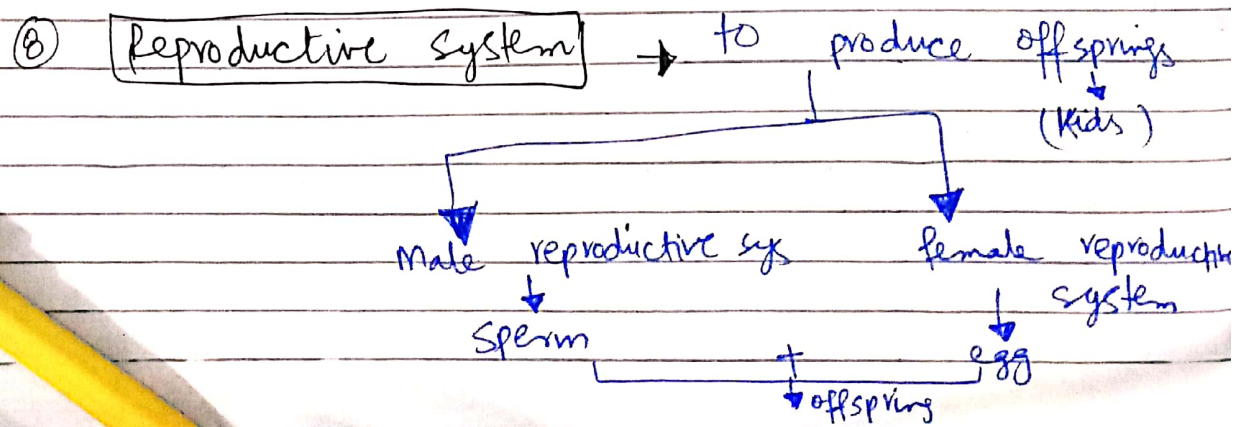 ⑧ Reproductive system → to produce offsprings
(Kids)
Male reproductive sys female reproductive
system
sperm + egg
offspring